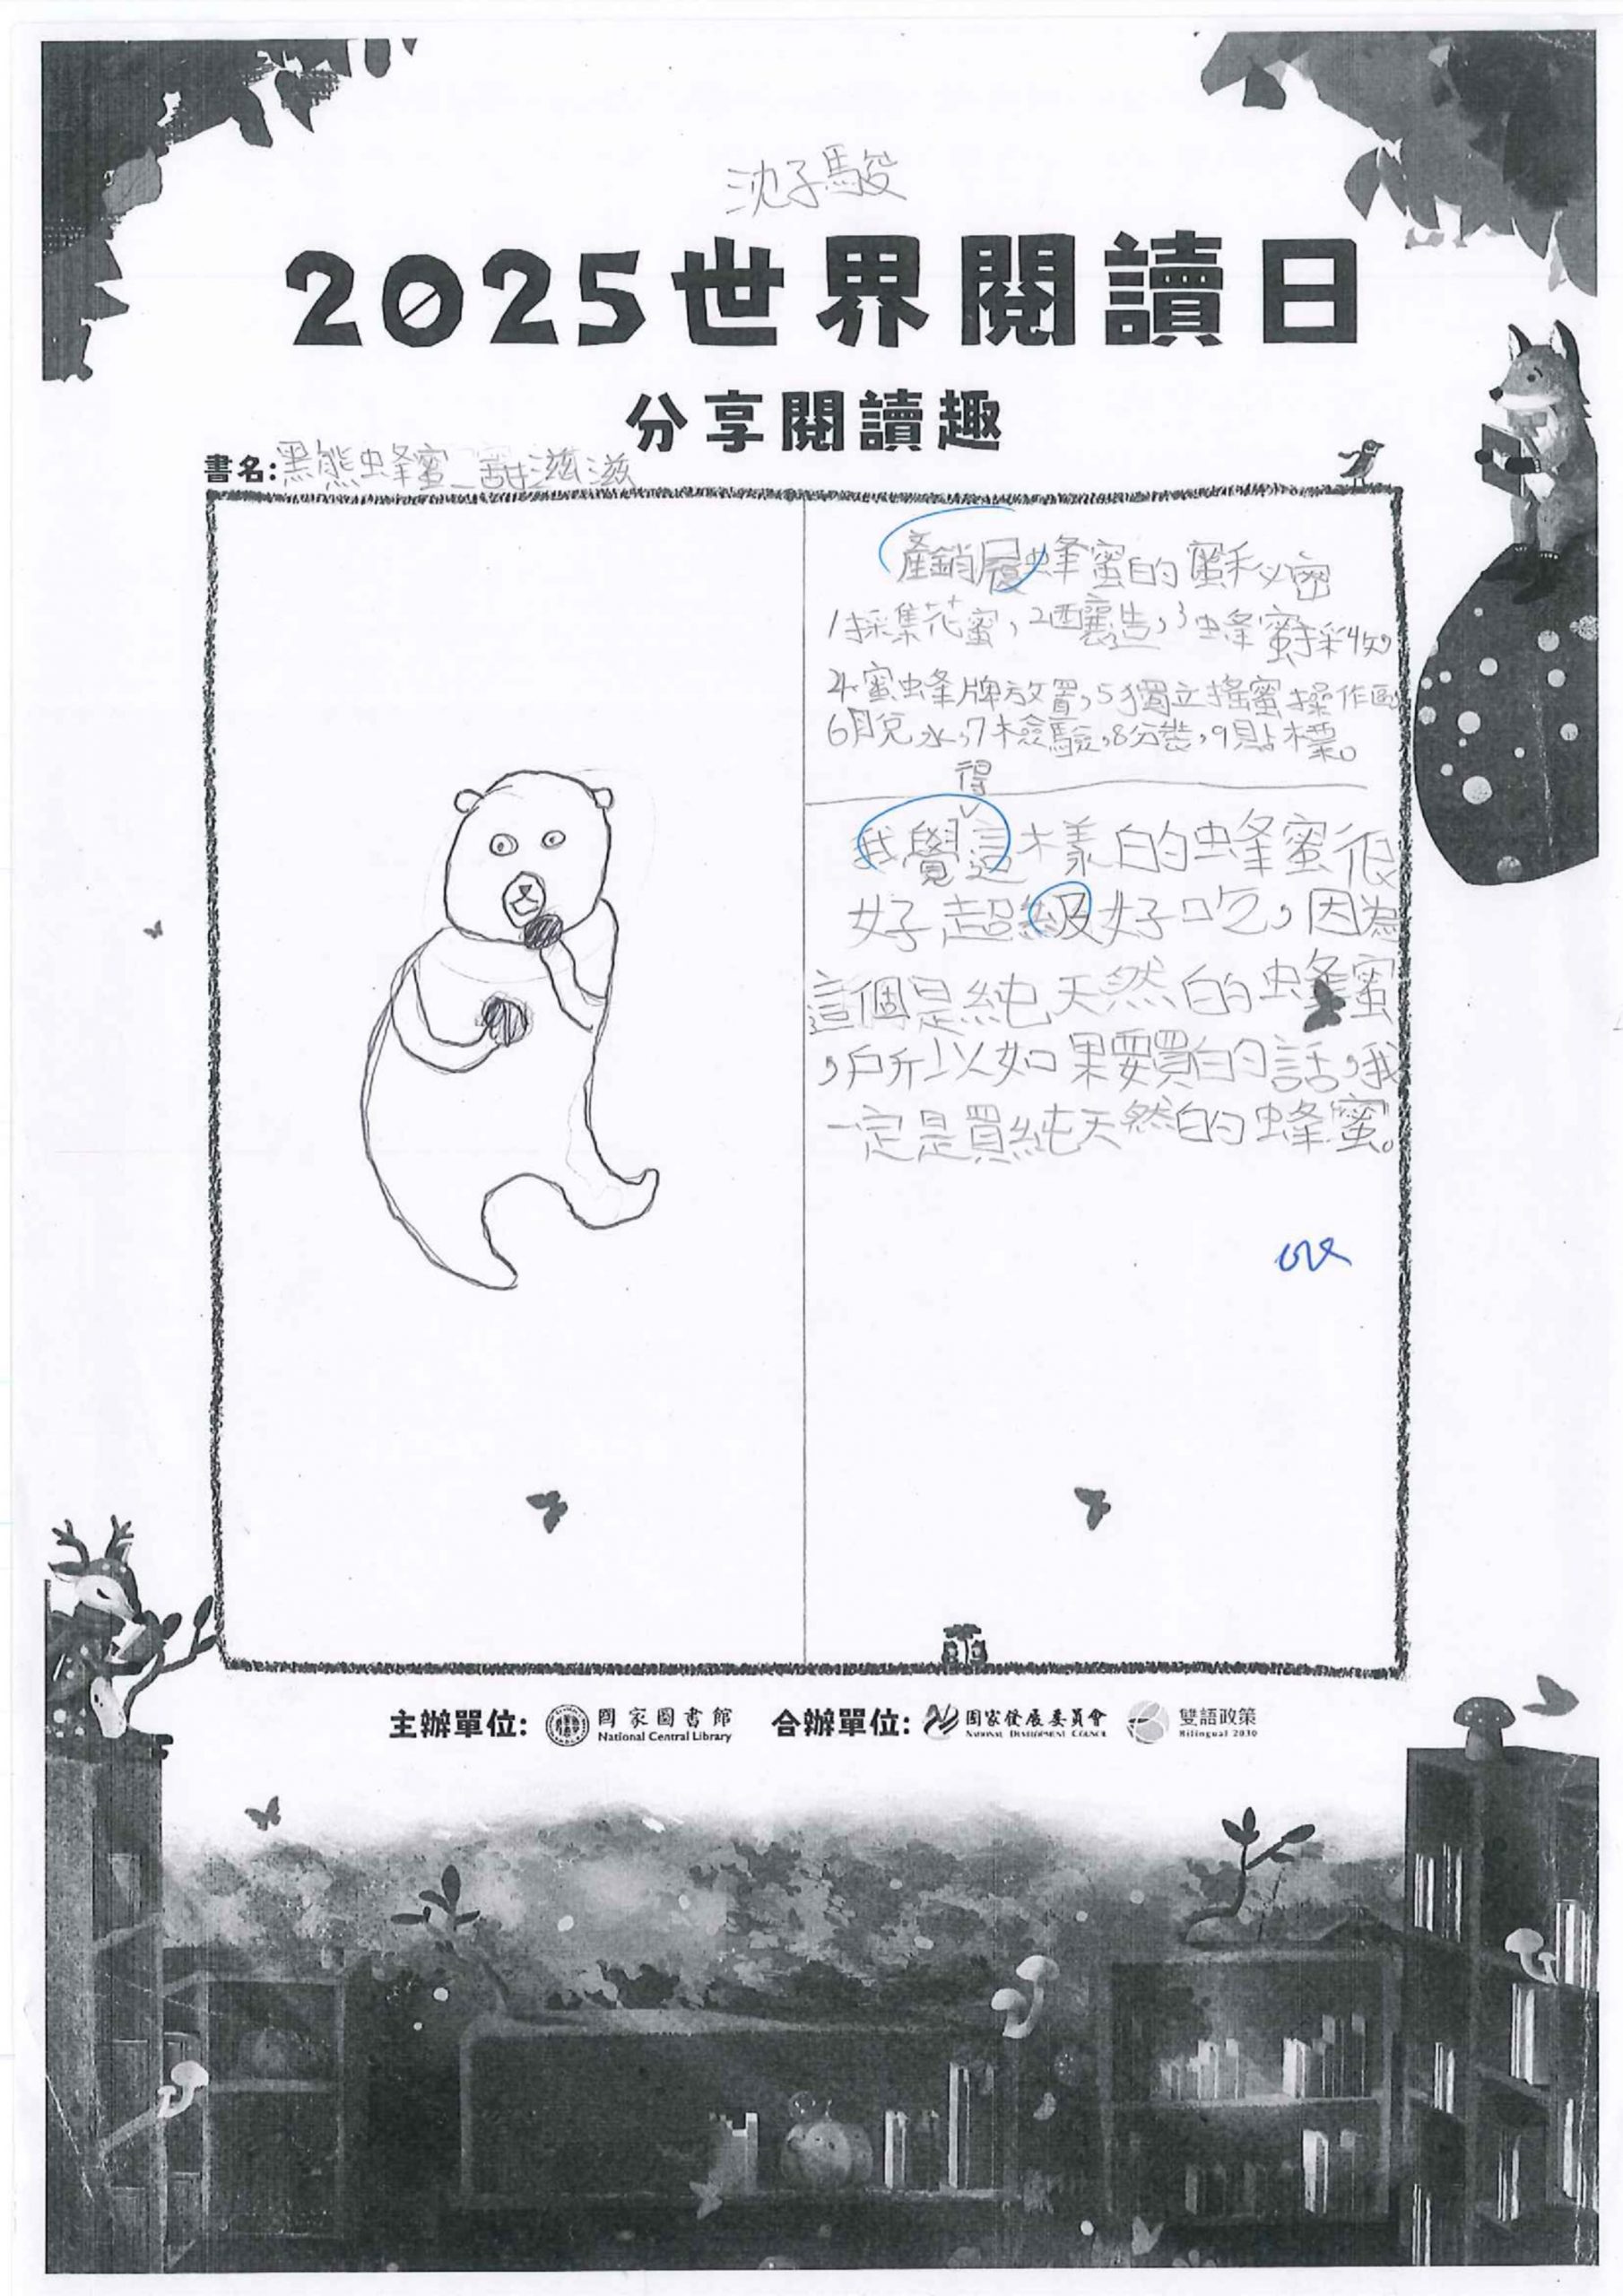 沈子駿
2025世界閱讀日
分享閱讀趣
書名:黑熊蜂蜜_甜滋滋
產銷履蜂蜜的蜜秘密
1採集花蜜,2釀造,3蜂蜜採收,
4蜜蜂牌放置,5獨立搖蜜操作區
6脫水,7檢驗,8分裝,9貼標。
得
我覺這樣的蜂蜜很
好超級好吃,因為
這個是純天然的蜂蜜
,所以如果要買的話,我
一定是買純天然的蜂蜜。
主辦單位: 國家圖書館 National Central Library 合辦單位: 國家發展委員會 NATIONAL DEVELOPMENT COUNCIL 雙語政策 Bilingual 2030